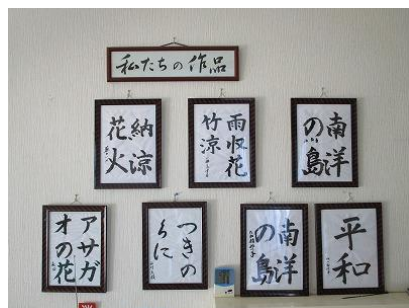 私たちの作品
納涼
花火
雨収花
竹涼
南洋
の島
アサガ
オの花
つきの
うに
南洋
の島
平和